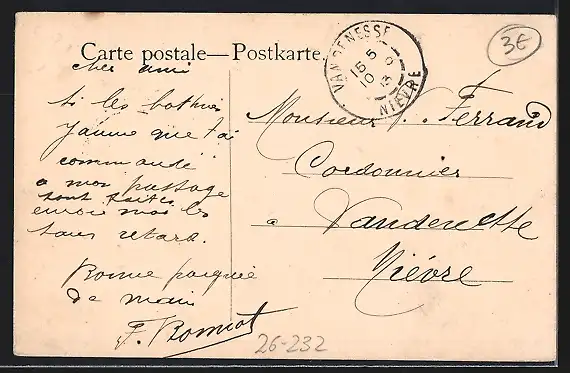 Carte postale—Postkarte.
cher ami
si les bottines
Jaune que t'ai
commandé
a mon passage
sont faites
envoie moi les
sans retard.
Bonne poignée
de main
F. Bonnot
VANDENESSE
15 5
10
13
NIÈVRE
3€
Monsieur Ferrand
Cordonnier
a Vandenesse
Nièvre
26-232